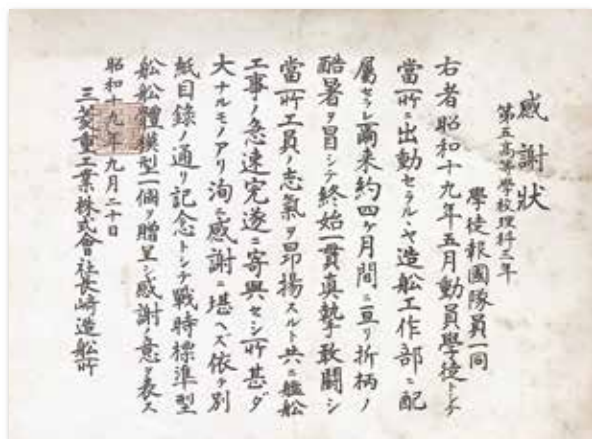 感謝狀
第五高等學校理科三年
學徒報國隊員一同
右者昭和十九年五月動員學徒トシテ
當所ニ出動セラルヽヤ造船工作部ニ配
屬セラレ爾来約四ケ月間ニ亘リ折柄ノ
酷暑ヲ冒シテ終始一貫真摯敢闘シ
當所工員ノ志氣ヲ昂揚スルト共ニ艦船
工事ノ急速完遂ニ寄與セシ所甚ダ
大ナルモノアリ洵ニ感謝ニ堪ヘズ依テ別
紙目錄ノ通リ記念トシテ戰時標準型
船船體模型一個ヲ贈呈シ感謝ノ意ヲ表ス
昭和十九年九月二十日
三菱重工業株式會社長崎造船所